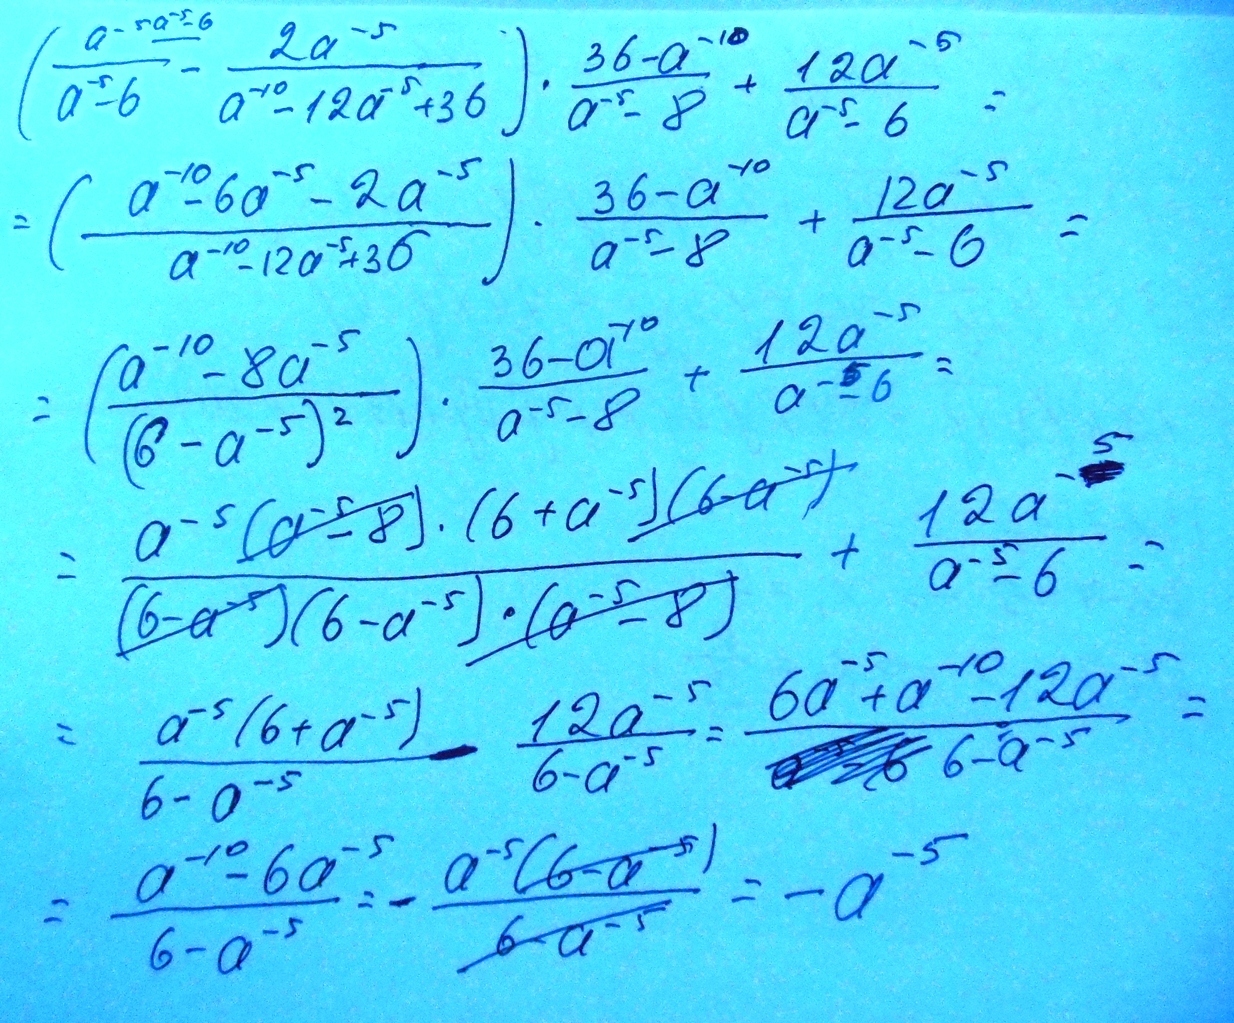 (a⁻⁵ ᵃ⁻⁵⁻⁶/(a⁻⁵-6) - 2a⁻⁵/(a⁻¹⁰-12a⁻⁵+36)) · (36-a⁻¹⁰)/(a⁻⁵-8) + 12a⁻⁵/(a⁻⁵-6) =
= ((a⁻¹⁰-6a⁻⁵-2a⁻⁵)/(a⁻¹⁰-12a⁻⁵+36)) · (36-a⁻¹⁰)/(a⁻⁵-8) + 12a⁻⁵/(a⁻⁵-6) =
= ((a⁻¹⁰-8a⁻⁵)/(6-a⁻⁵)²) · (36-a⁻¹⁰)/(a⁻⁵-8) + 12a⁻⁵/(a⁻⁵-6) =
= (a⁻⁵(a⁻⁵-8)·(6+a⁻⁵)(6-a⁻⁵))/((6-a⁻⁵)(6-a⁻⁵)·(a⁻⁵-8)) + 12a⁻⁵/(a⁻⁵-6) =
= a⁻⁵(6+a⁻⁵)/(6-a⁻⁵) - 12a⁻⁵/(6-a⁻⁵) = (6a⁻⁵+a⁻¹⁰-12a⁻⁵)/(6-a⁻⁵) =
= (a⁻¹⁰-6a⁻⁵)/(6-a⁻⁵) = - a⁻⁵(6-a⁻⁵)/(6-a⁻⁵) = -a⁻⁵